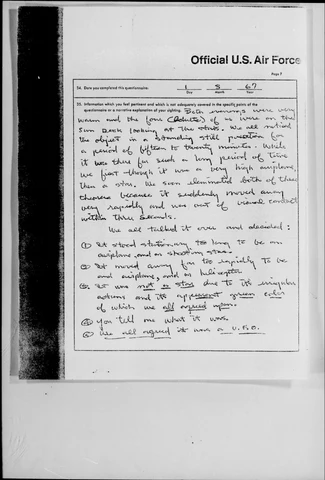 Official U.S. Air Force
Page 9
34. Date you completed this questionnaire:
1 8 67
Day Month Year
35. Information which you feel pertinent and which is not adequately covered in the specific points of the
questionnaire or a narrative explanation of your sighting. Both evenings were very
warm and the four (Adults) of us were on the
Sun Deck looking at the stars. We all noticed
the object in a standing still position for
a period of fifteen to twenty minutes. While
it was there for such a long period of time
we first though it was a very high airplane,
then a star. We soon eliminated both of these
theories because it suddenly moved away
very rapidly and was out of visual contact
within three seconds.
We all talked it over and decided:
① It stood stationary too long to be an
airplane, and or shooting star.
② It moved away far too rapidly to be
and airplane, and or helicopter
③ It was not a star due to its irregular
actions and its apparent green color
of which we all agreed upon.
④ You tell me what it was
⑤ We all agreed it was a U.F.O.